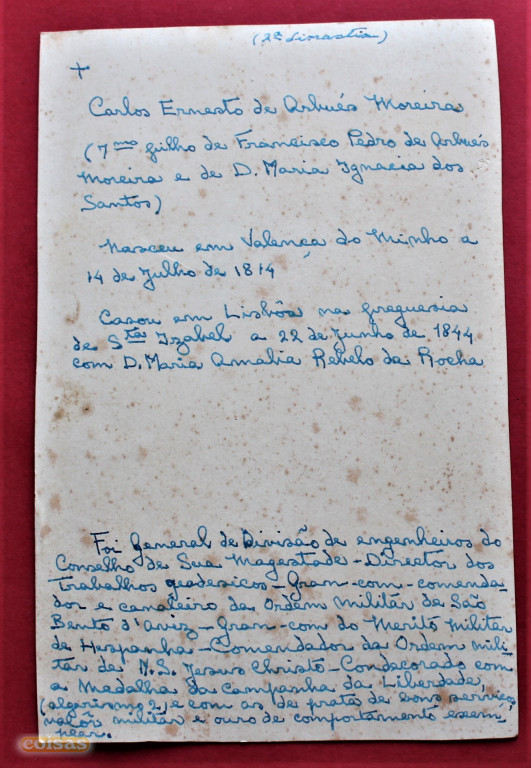 (2ª Dinastia)
+
Carlos Ernesto de Arbués Moreira
(7mo filho de Francisco Pedro de Arbués
Moreira e de D. Maria Ignacia dos
Santos)
Nasceu em Valença do Minho a
14 de Julho de 1814
Casou em Lisbôa na freguesia
de Sta Izabel a 22 de Junho de 1844
com D. Maria Amalia Rebelo da Rocha
Foi General de Divisão de engenheiros do
Conselho de Sua Magestade - Director dos
trabalhos geodesicos - Gran-com-comenda-
dor e cavaleiro da Ordem militar de São
Bento d'Aviz - Gran-com do Merito Militar
de Hespanha - Comendador da Ordem mili-
tar de N. S. Jesus Christo - Condecorado com
a Medalha da Campanha da Liberdade
(algarismo 2) e com as de prata de bons serviços
valôr militar e ouro de comportamento exem-
plar.
coisas